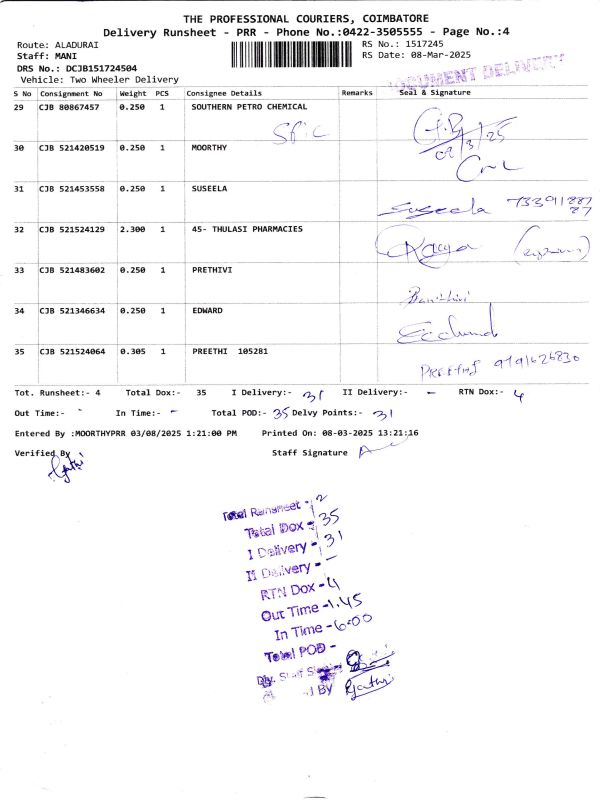 THE PROFESSIONAL COURIERS, COIMBATORE
Delivery Runsheet - PRR - Phone No.:0422-3505555 - Page No.:4
Route: ALADURAI
RS No.: 1517245
Staff: MANI
RS Date: 08-Mar-2025
DRS No.: DCJB151724504
DOCUMENT DELIVERY
Vehicle: Two Wheeler Delivery
S No Consignment No Weight PCS Consignee Details Remarks Seal & Signature
29 CJB 80867457 0.250 1 SOUTHERN PETRO CHEMICAL
Spic
08/3/25
30 CJB 521420519 0.250 1 MOORTHY
31 CJB 521453558 0.250 1 SUSEELA
Suseela
32 CJB 521524129 2.300 1 45- THULASI PHARMACIES
33 CJB 521483602 0.250 1 PRETHIVI
34 CJB 521346634 0.250 1 EDWARD
35 CJB 521524064 0.305 1 PREETHI 105281
PREETHI 9791626830
Tot. Runsheet:- 4 Total Dox:- 35 I Delivery:- 31 II Delivery:- - RTN Dox:- 4
Out Time:- - In Time:- - Total POD:- 35 Delvy Points:- 31
Entered By :MOORTHYPRR 03/08/2025 1:21:00 PM Printed On: 08-03-2025 13:21:16
Verified By Staff Signature
Total Runsheet - 2
Total Dox - 35
I Delivery - 31
II Delivery - -
RTN Dox - 4
Out Time - 1.45
In Time - 6.00
Total POD -
Dly. Staff
By Gathri